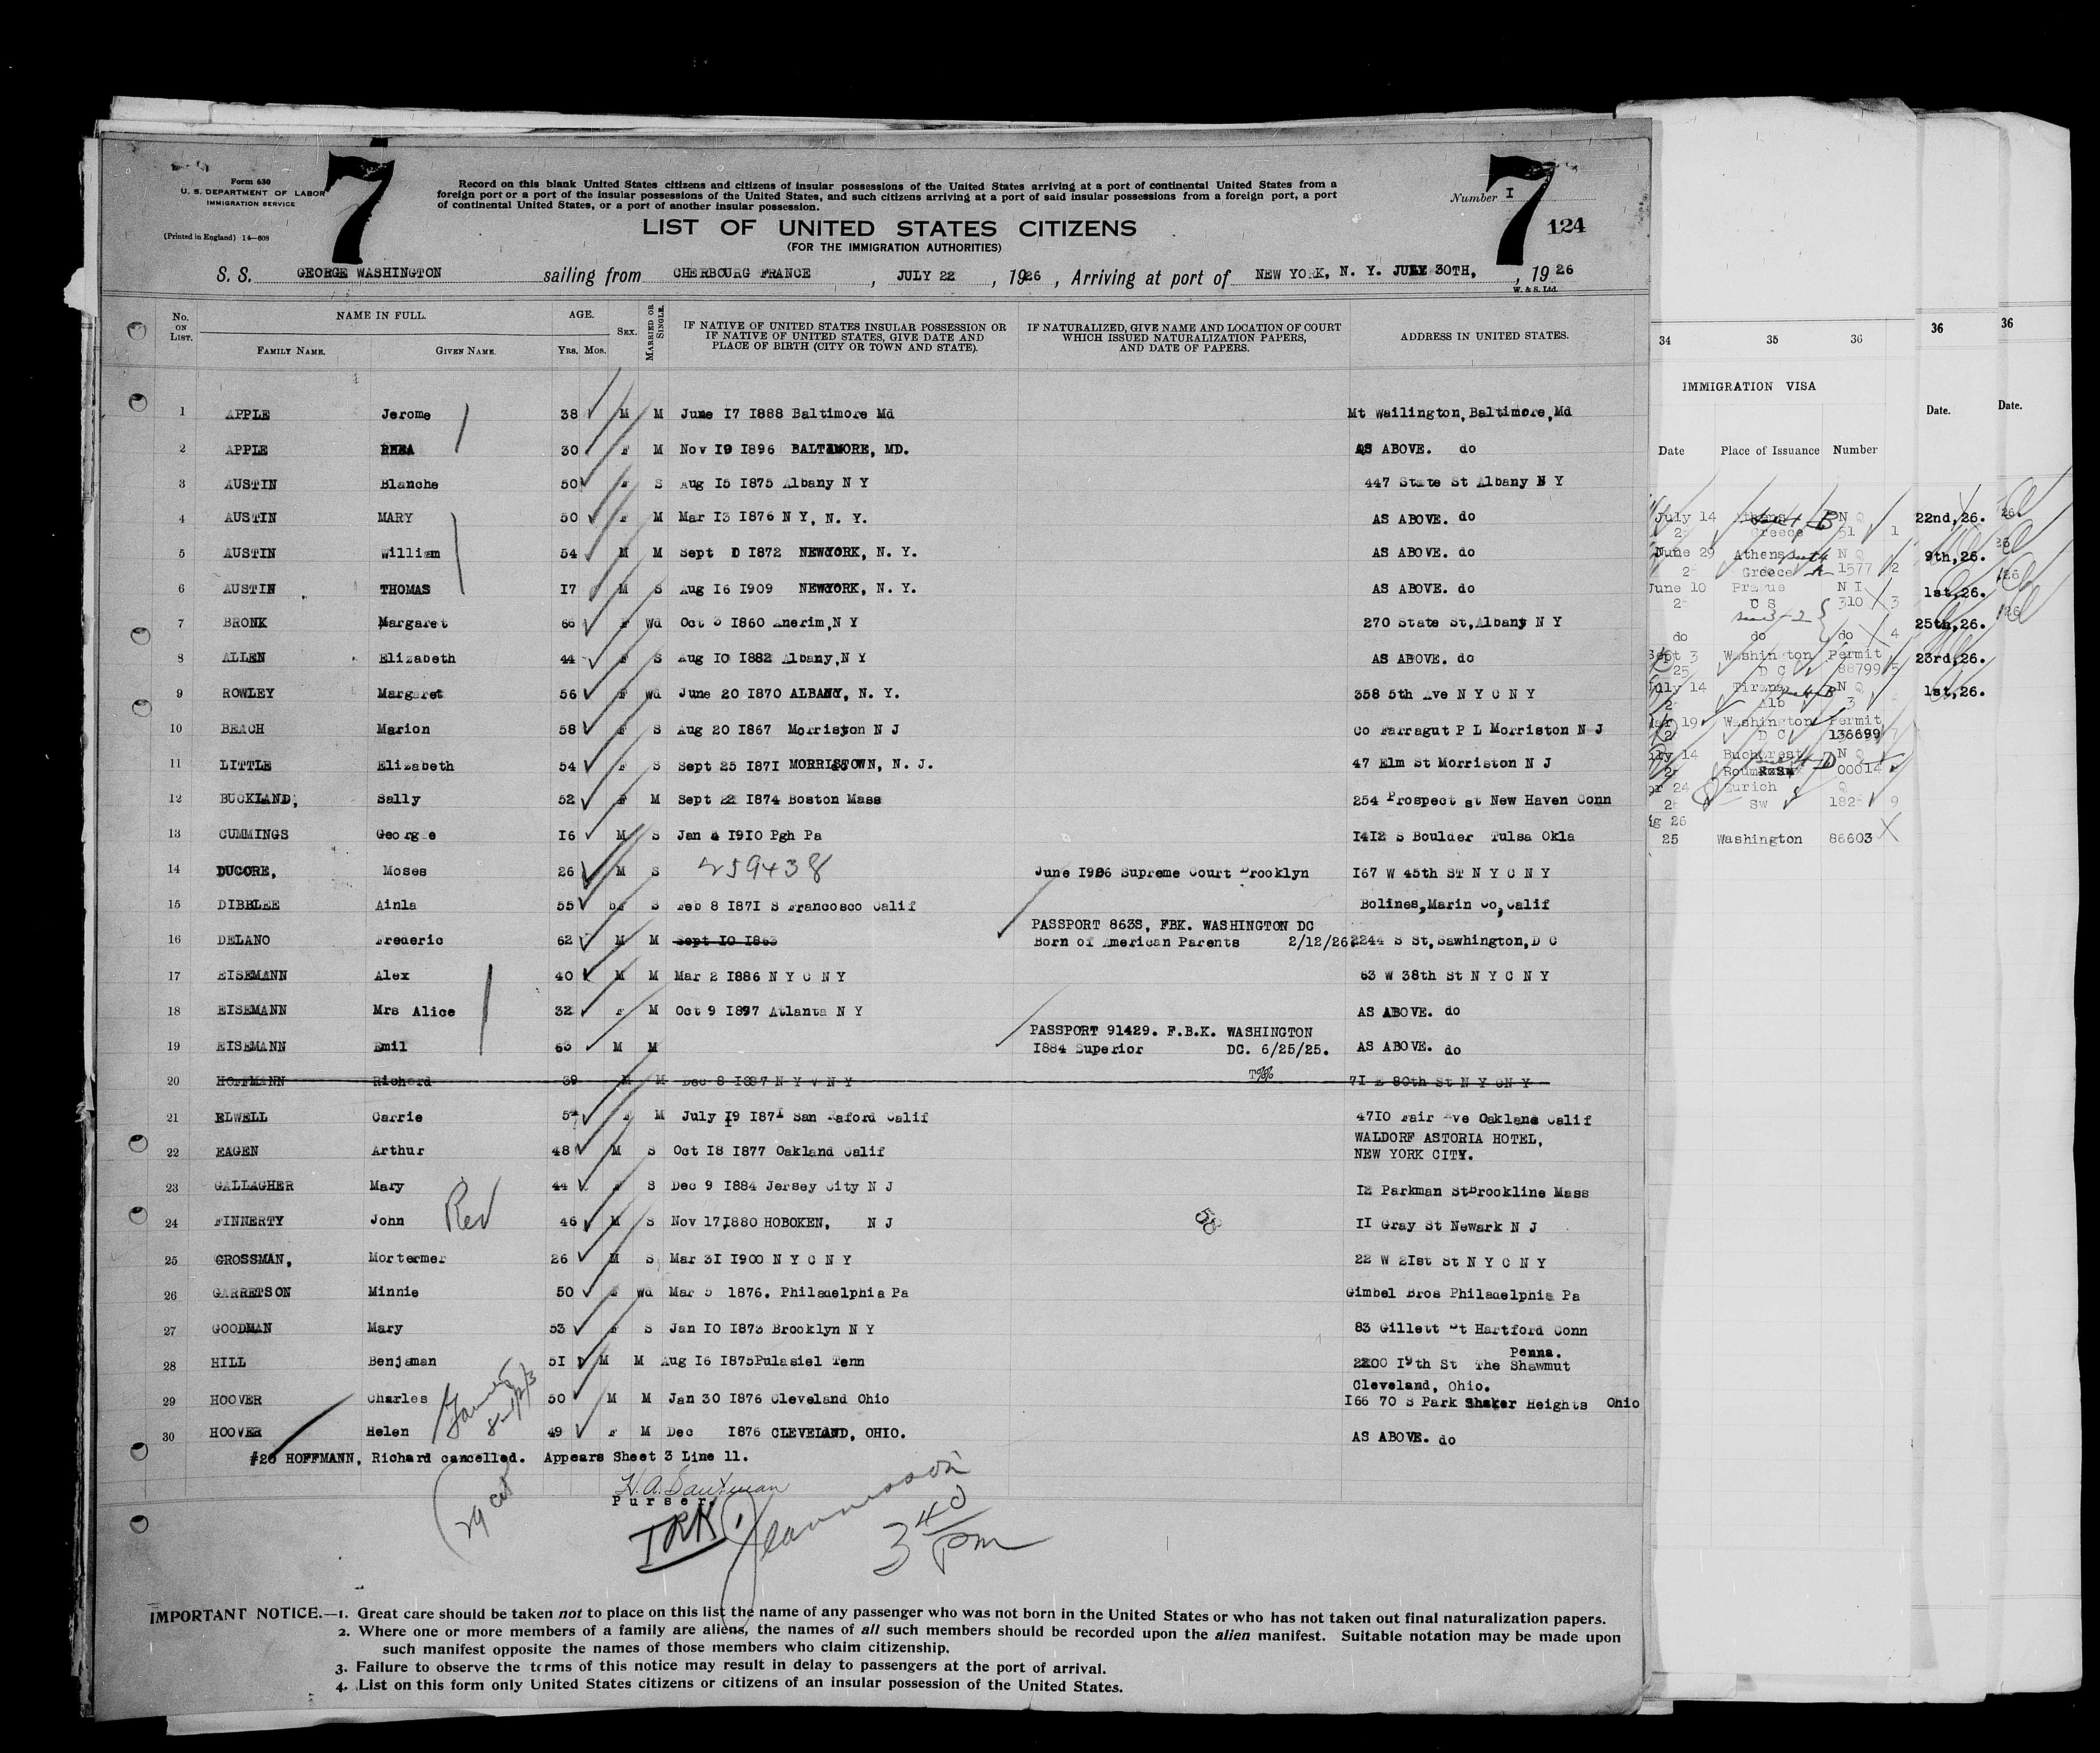 7
7
Form 630
U. S. DEPARTMENT OF LABOR
IMMIGRATION SERVICE
(Printed in England) 14—608
Record on this blank United States citizens and citizens of insular possessions of the United States arriving at a port of continental United States from a
foreign port or a port of the insular possessions of the United States, and such citizens arriving at a port of said insular possessions from a foreign port, a port
of continental United States, or a port of another insular possession.
Number I
124
LIST OF UNITED STATES CITIZENS
(FOR THE IMMIGRATION AUTHORITIES)
S. S. GEORGE WASHINGTON sailing from CHERBOURG FRANCE, JULY 22, 1926, Arriving at port of NEW YORK, N. Y. JULY 30TH, 1926
W. & S. Ltd.
No. ON LIST. NAME IN FULL. AGE. SEX. MARRIED OR SINGLE. IF NATIVE OF UNITED STATES INSULAR POSSESSION OR IF NATIVE OF UNITED STATES, GIVE DATE AND PLACE OF BIRTH (CITY OR TOWN AND STATE). IF NATURALIZED, GIVE NAME AND LOCATION OF COURT WHICH ISSUED NATURALIZATION PAPERS, AND DATE OF PAPERS. ADDRESS IN UNITED STATES.
FAMILY NAME. GIVEN NAME. YRS. MOS.
1 APPLE Jerome 38 M M June I7 I888 Baltimore Md Mt Wailington, Baltimore, Md
2 APPLE RHEA 30 F M Nov I9 I896 BALTIMORE, MD. AS ABOVE. do
3 AUSTIN Blanche 50 F S Aug I5 I875 Albany N Y 447 State St Albany N Y
4 AUSTIN MARY 50 F M Mar I3 I876 N Y, N. Y. AS ABOVE. do
5 AUSTIN William 54 M M Sept D I872 NEWYORK, N. Y. AS ABOVE. do
6 AUSTIN THOMAS I7 M S Aug I6 I909 NEWYORK, N. Y. AS ABOVE. do
7 BRONK Margaret 66 F Wd Oct 3 I860 Anerim, N Y 270 State St, Albany N Y
8 ALLEN Elizabeth 44 F S Aug IO I882 Albany, N Y AS ABOVE. do
9 ROWLEY Margaret 56 F Wd June 20 I870 ALBANY, N. Y. 358 5th Ave N Y C N Y
10 BEACH Marion 58 F S Aug 20 I867 Morriston N J Co Farragut P L Morriston N J
11 LITTLE Elizabeth 54 F S Sept 25 I87I MORRISTOWN, N. J. 47 Elm St Morriston N J
12 BUCKLAND, Sally 52 F M Sept 22 I874 Boston Mass 254 Prospect st New Haven Conn
13 CUMMINGS George I6 M S Jan 4 I9IO Pgh Pa I4I2 S Boulder Tulsa Okla
14 DUCORE, Moses 26 M S 259438 June I926 Supreme Court Brooklyn I67 W 45th ST N Y C N Y
15 DIBBLEE Ainla 55 F S Feb 8 I87I S Francosco Calif Bolines, Marin Co, Calif
PASSPORT 863S, FBK. WASHINGTON DC
16 DELANO Frederic 62 M M Sept IO I863 Born of American Parents 2/12/26 2244 S St, Sawhington, D C
17 EISEMANN Alex 40 M M Mar 2 I886 N Y C N Y 63 W 38th St N Y C N Y
18 EISEMANN Mrs Alice 32 F M Oct 9 I897 Atlanta N Y AS ABOVE. do
PASSPORT 91429. F.B.K. WASHINGTON
19 EISEMANN Emil 63 M M I884 Superior DC. 6/25/25. AS ABOVE. do
20 HOFFMANN Richard 39 M M Dec 8 I887 N Y N Y 7I E 80th St N Y CN Y
21 ELWELL Carrie 54 F M July I9 I87I San Raford Calif 47IO Fair Ave Oakland Calif
22 EAGEN Arthur 48 M S Oct I8 I877 Oakland Calif WALDORF ASTORIA HOTEL,
NEW YORK CITY.
23 GALLAGHER Mary 44 F S Dec 9 I884 Jersey City N J I2 Parkman St Brookline Mass
24 FINNERTY John Rev 46 M S Nov 17, I880 HOBOKEN, N J II Gray St Newark N J
25 GROSSMAN, Mortermer 26 M S Mar 3I I900 N Y C N Y 22 W 2Ist St N Y C N Y
26 GARRETSON Minnie 50 F Wd Mar 5 1876. Philadelphia Pa Gimbel Bros Philadelphia Pa
27 GOODMAN Mary 53 F S Jan IO I873 Brooklyn N Y 83 Gillett St Hartford Conn
Penna.
28 HILL Benjaman 5I M M Aug I6 I875 Pulasiel Tenn 2200 I9th St The Shawmut
Cleveland, Ohio.
29 HOOVER Charles 50 M M Jan 30 I876 Cleveland Ohio I66 70 S Park Shaker Heights Ohio
30 HOOVER Helen 49 F M Dec I876 CLEVELAND, OHIO. AS ABOVE. do
#20 HOFFMANN, Richard cancelled. Appears Sheet 3 Line 11.
Purser
IRK
3 40 pm
IMPORTANT NOTICE.—1. Great care should be taken not to place on this list the name of any passenger who was not born in the United States or who has not taken out final naturalization papers.
2. Where one or more members of a family are aliens, the names of all such members should be recorded upon the alien manifest. Suitable notation may be made upon
such manifest opposite the names of those members who claim citizenship.
3. Failure to observe the terms of this notice may result in delay to passengers at the port of arrival.
4. List on this form only United States citizens or citizens of an insular possession of the United States.
34 35 36
IMMIGRATION VISA
Date Place of Issuance Number
July 14 Athens N Q
Greece 51 1
June 29 Athens N Q
Greece 1577 2
June 10 Prague N I
C S 310 3
do do do 4
Sept 3 Washington Permit
25 D C 88799 5
July 14 Tirana N Q
Alb 3
Mar 19 Washington Permit
D C 136699 7
July 14 Bucharest N Q
Roum 00014
Zurich
Sw 182 9
25 Washington 86603
36
Date.
22nd, 26.
9th, 26.
1st, 26.
25th, 26.
23rd, 26.
1st, 26.
36
Date.
26.